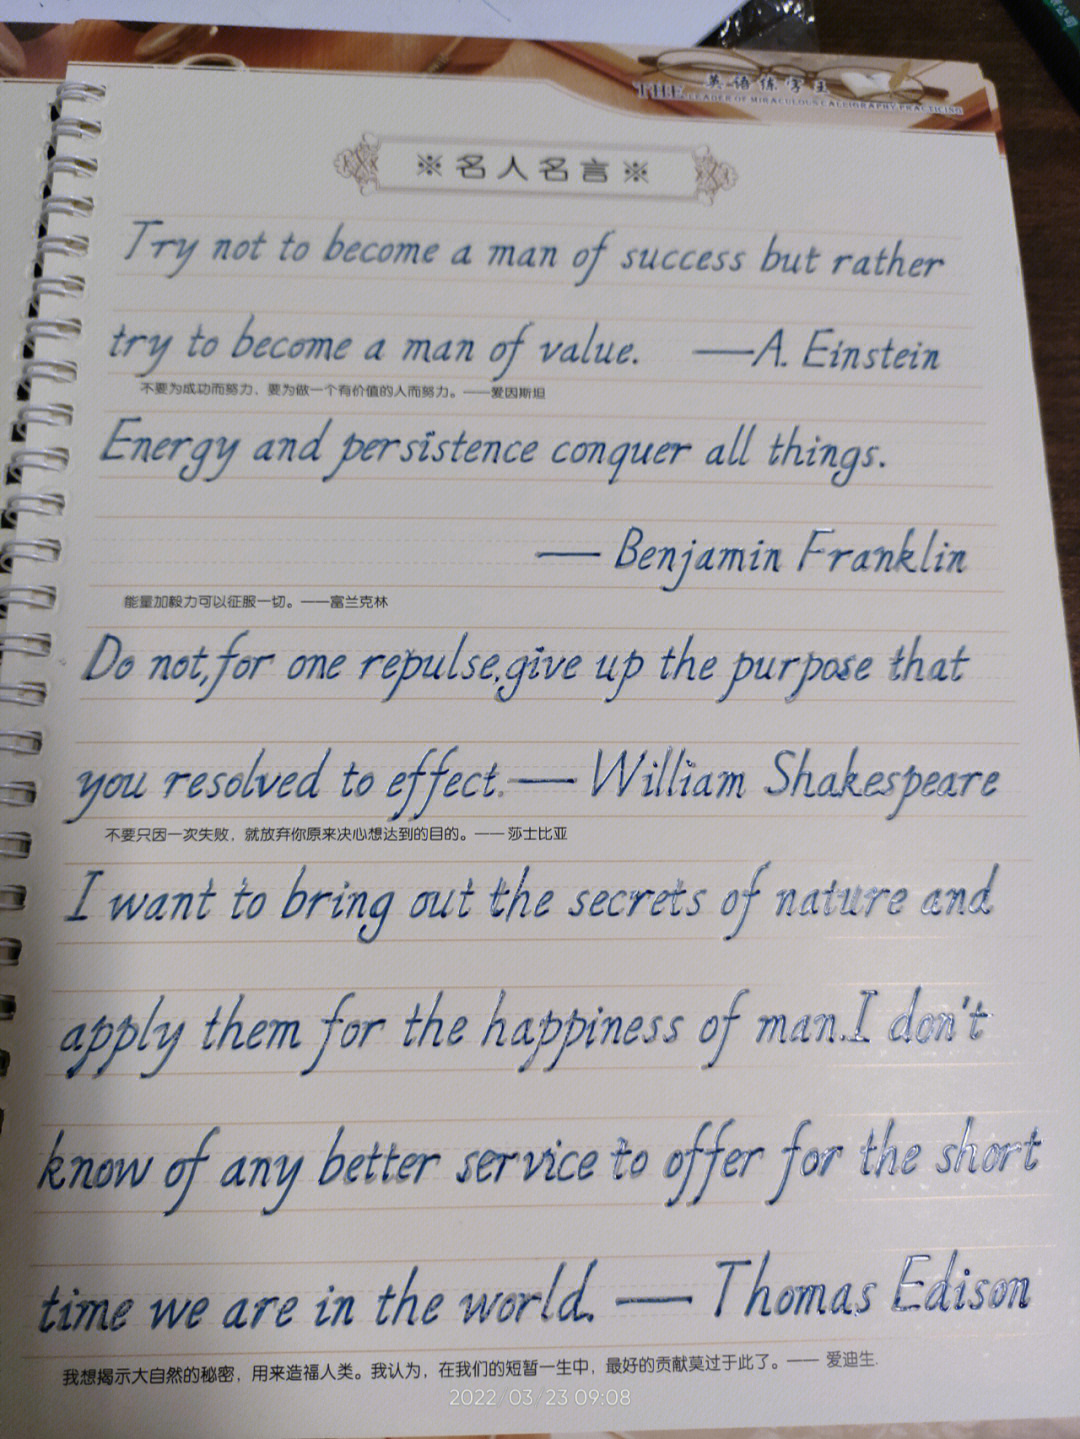 英语练字王
THE LEADER OF MIRACULOUS CALLIGRAPHY PRACTICING
※名人名言※
Try not to become a man of success but rather
try to become a man of value. ——A. Einstein
不要为成功而努力，要为做一个有价值的人而努力。——爱因斯坦
Energy and persistence conquer all things.
—— Benjamin Franklin
能量加毅力可以征服一切。——富兰克林
Do not,for one repulse,give up the purpose that
you resolved to effect.—— William Shakespeare
不要只因一次失败，就放弃你原来决心想达到的目的。——莎士比亚
I want to bring out the secrets of nature and
apply them for the happiness of man.I don't
know of any better service to offer for the short
time we are in the world. —— Thomas Edison
我想揭示大自然的秘密，用来造福人类。我认为，在我们的短暂一生中，最好的贡献莫过于此了。—— 爱迪生.
2022/03/23 09:08